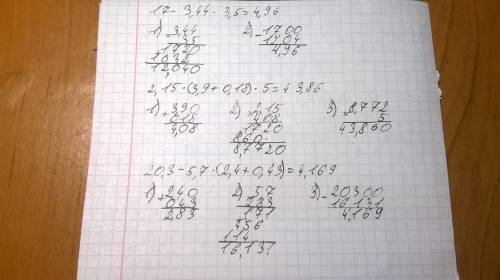 17 - 3,44 · 3,5 = 4,96
1) 3,44 2) - 17,00
3,5 12,04
1720 4,96
1032
12,040
2,15 · (3,9 + 0,18) · 5 = 43,86
1) + 3,90 2) 2,15 3) 8,772
0,18 4,08 5
4,08 1720 43,860
860
8,7720
20,3 - 5,7 · (2,4 + 0,43) = 4,169
1) + 2,40 2) 5,7 3) - 20,300
0,43 2,83 16,131
2,83 171 4,169
456
114
16,131